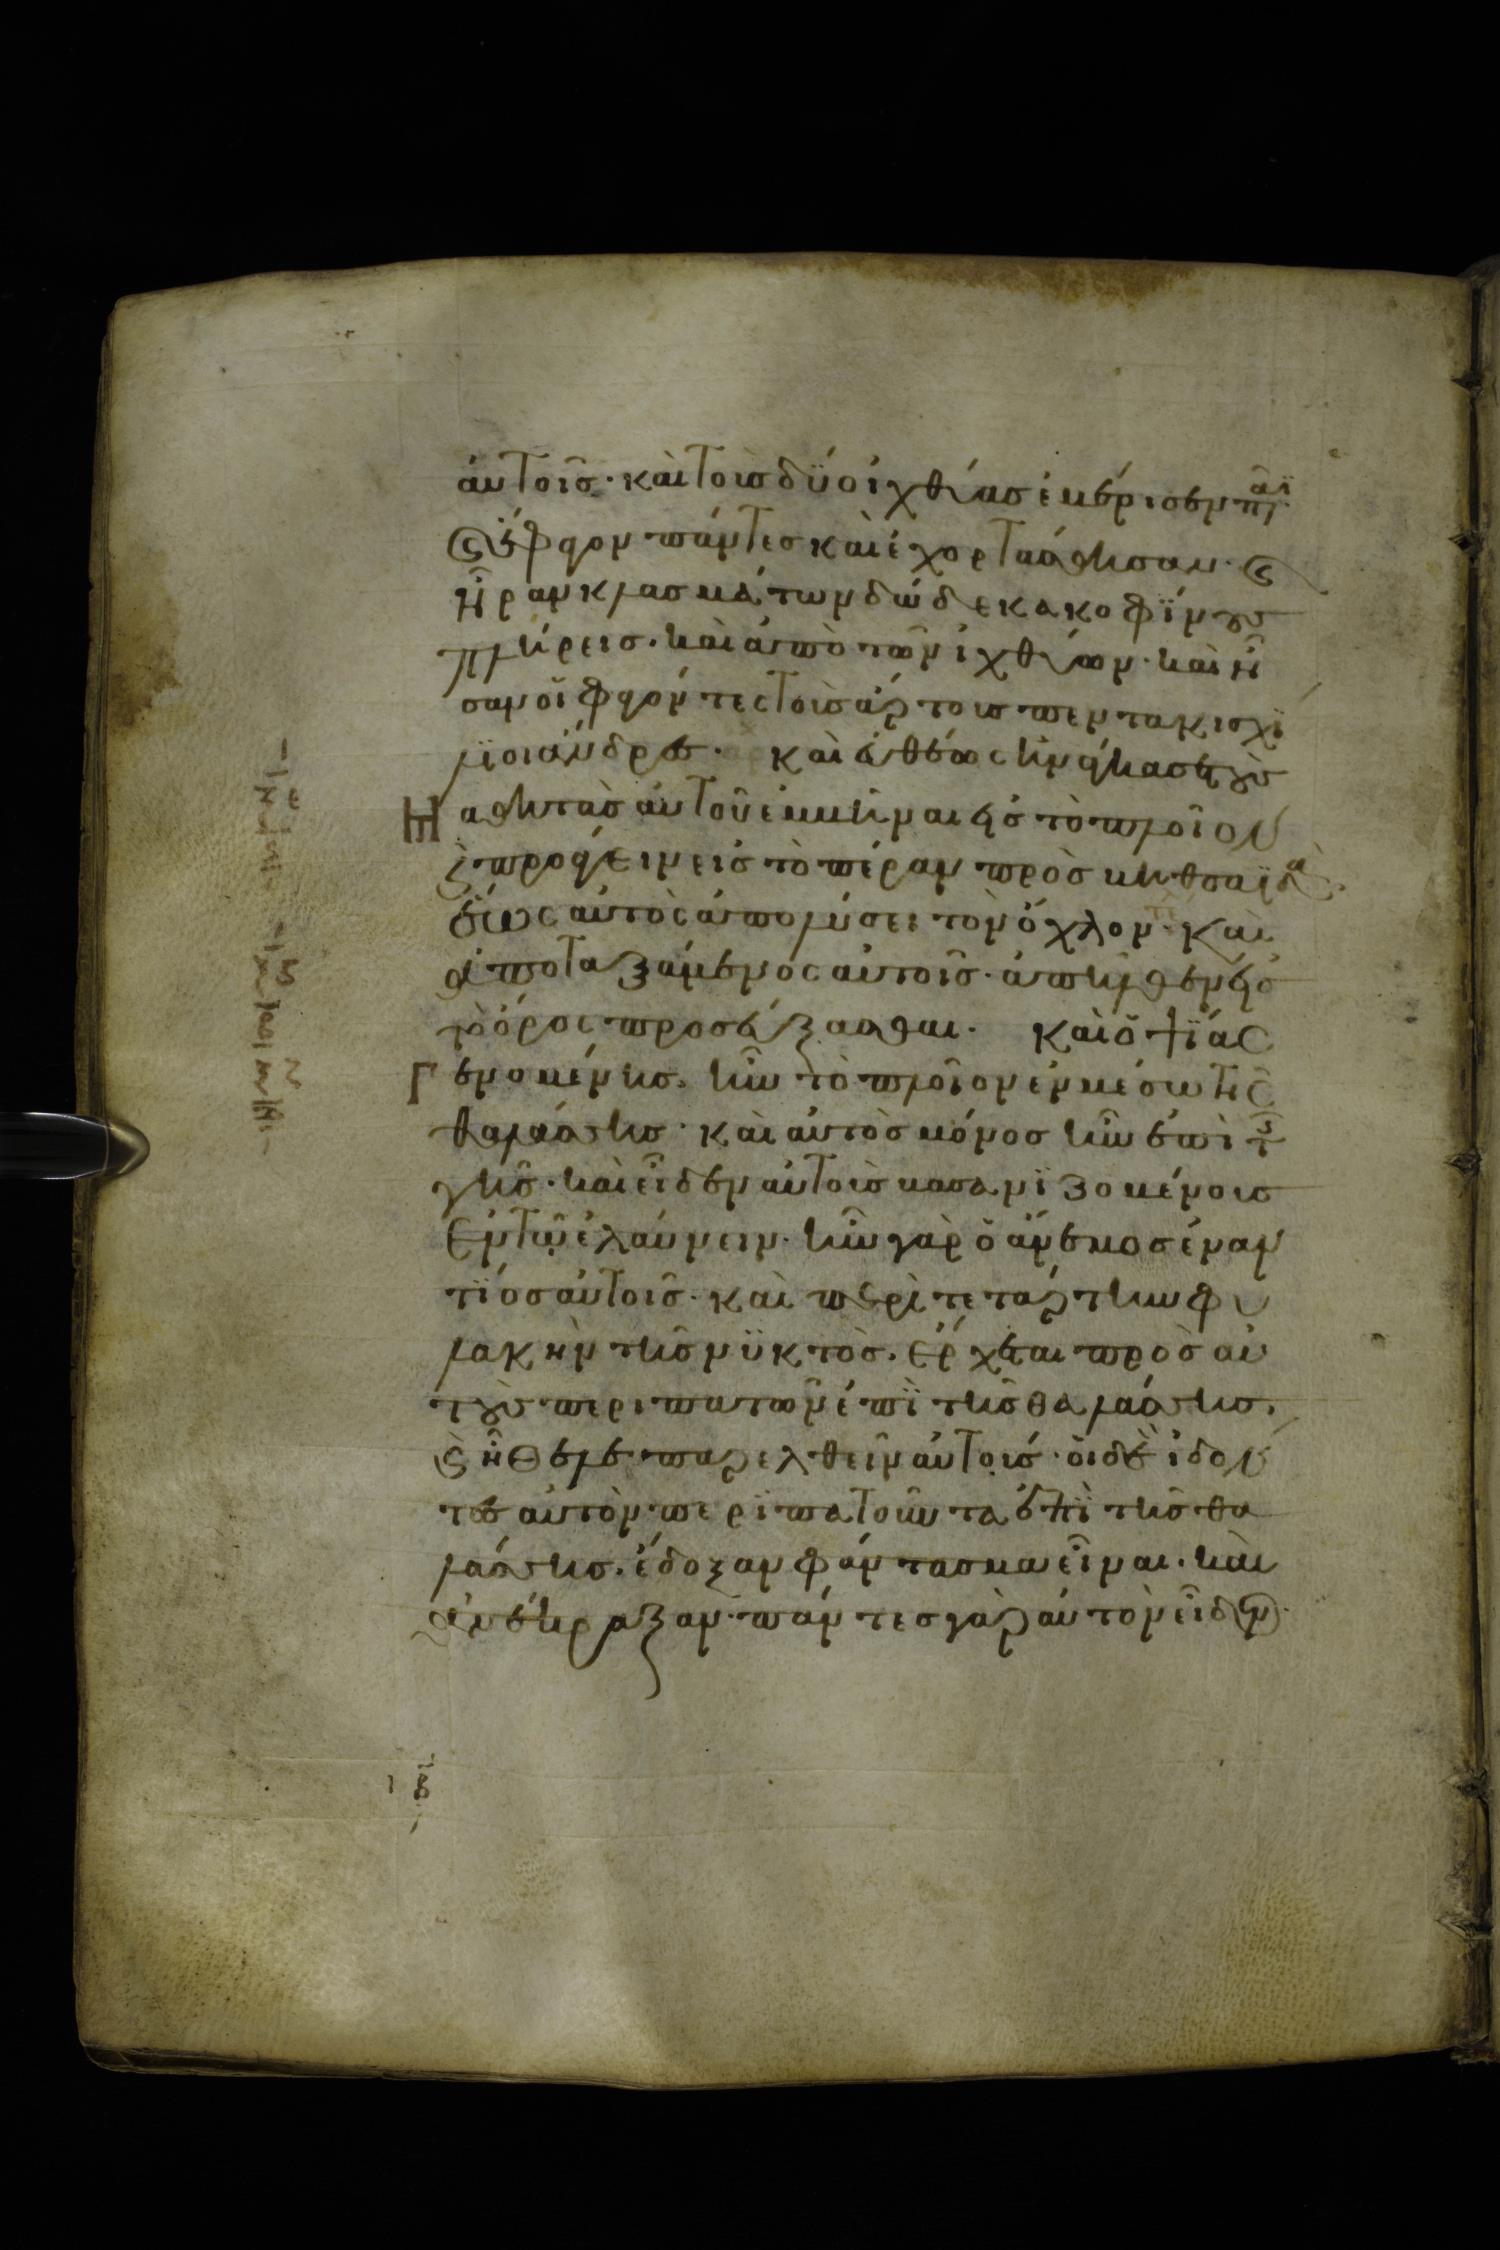 ἀυτοῖς· καὶ τοὺς δύο ἰχθύας ἐμέρισεν πᾶσϊ
καὶ ἔφαγον πάντες καὶ ἐχορτάσθησαν· καὶ
ἦραν κλασμάτων δώδεκα κοφΐνους
πλήρεις· καὶ ἀπὸ τῶν ἰχθύων· καὶ ἦ
σαν οἱ φαγόντες τοὺς ἄρτους πεντακισχί
λϊοι ἄνδρες· καὶ ἐυθέως ἠνάγκασε τοὺς
Μαθητὰς ἀυτοῦ ἐμβῆναι εἰς τὸ πλοῖον
καὶ προάγειν εἰς τὸ πέραν πρὸς βηθσαϊδὰ·
ἕως ἀυτὸς ἀπολύσει τὸν ὄχλον· καὶ
ἀποταξάμενος ἀυτοῖς· ἀπῆλθεν εἰς
τὸ ὄρος προσεύξασθαι· καὶ ὀψΐας
Γενομένης· ἦν τὸ πλοῖον ἐν μέσω τῆς
θαλάσσης· καὶ ἀυτὸς μόνος ἦν ἐπὶ τῆς
γῆς· καὶ εἶδεν ἀυτοὺς βασανϊζομένους
Ἐν τῷ ἐλαύνειν· ἦν γὰρ ὁ ἄνεμος ἐναν
τΐος ἀυτοῖς· καὶ περὶ τετάρτην φυ
λακὴν τῆς νϋκτὸς· ἔρχεται πρὸς ἀυ
τοὺς περιπατῶν ἐπῒ τῆς θαλάσσης·
καὶ ἤθελε παρελθεῖν ἀυτούς· ὁι δὲ ἰδόν
τες ἀυτὸν περϊπατοῦντα ἐπῒ τῆς θα
λάσσης· ἔδοξαν φάντασμα εἶναι· καὶ
ἀνέκραξαν· πάντες γὰρ ἀυτὸν εἶδον·